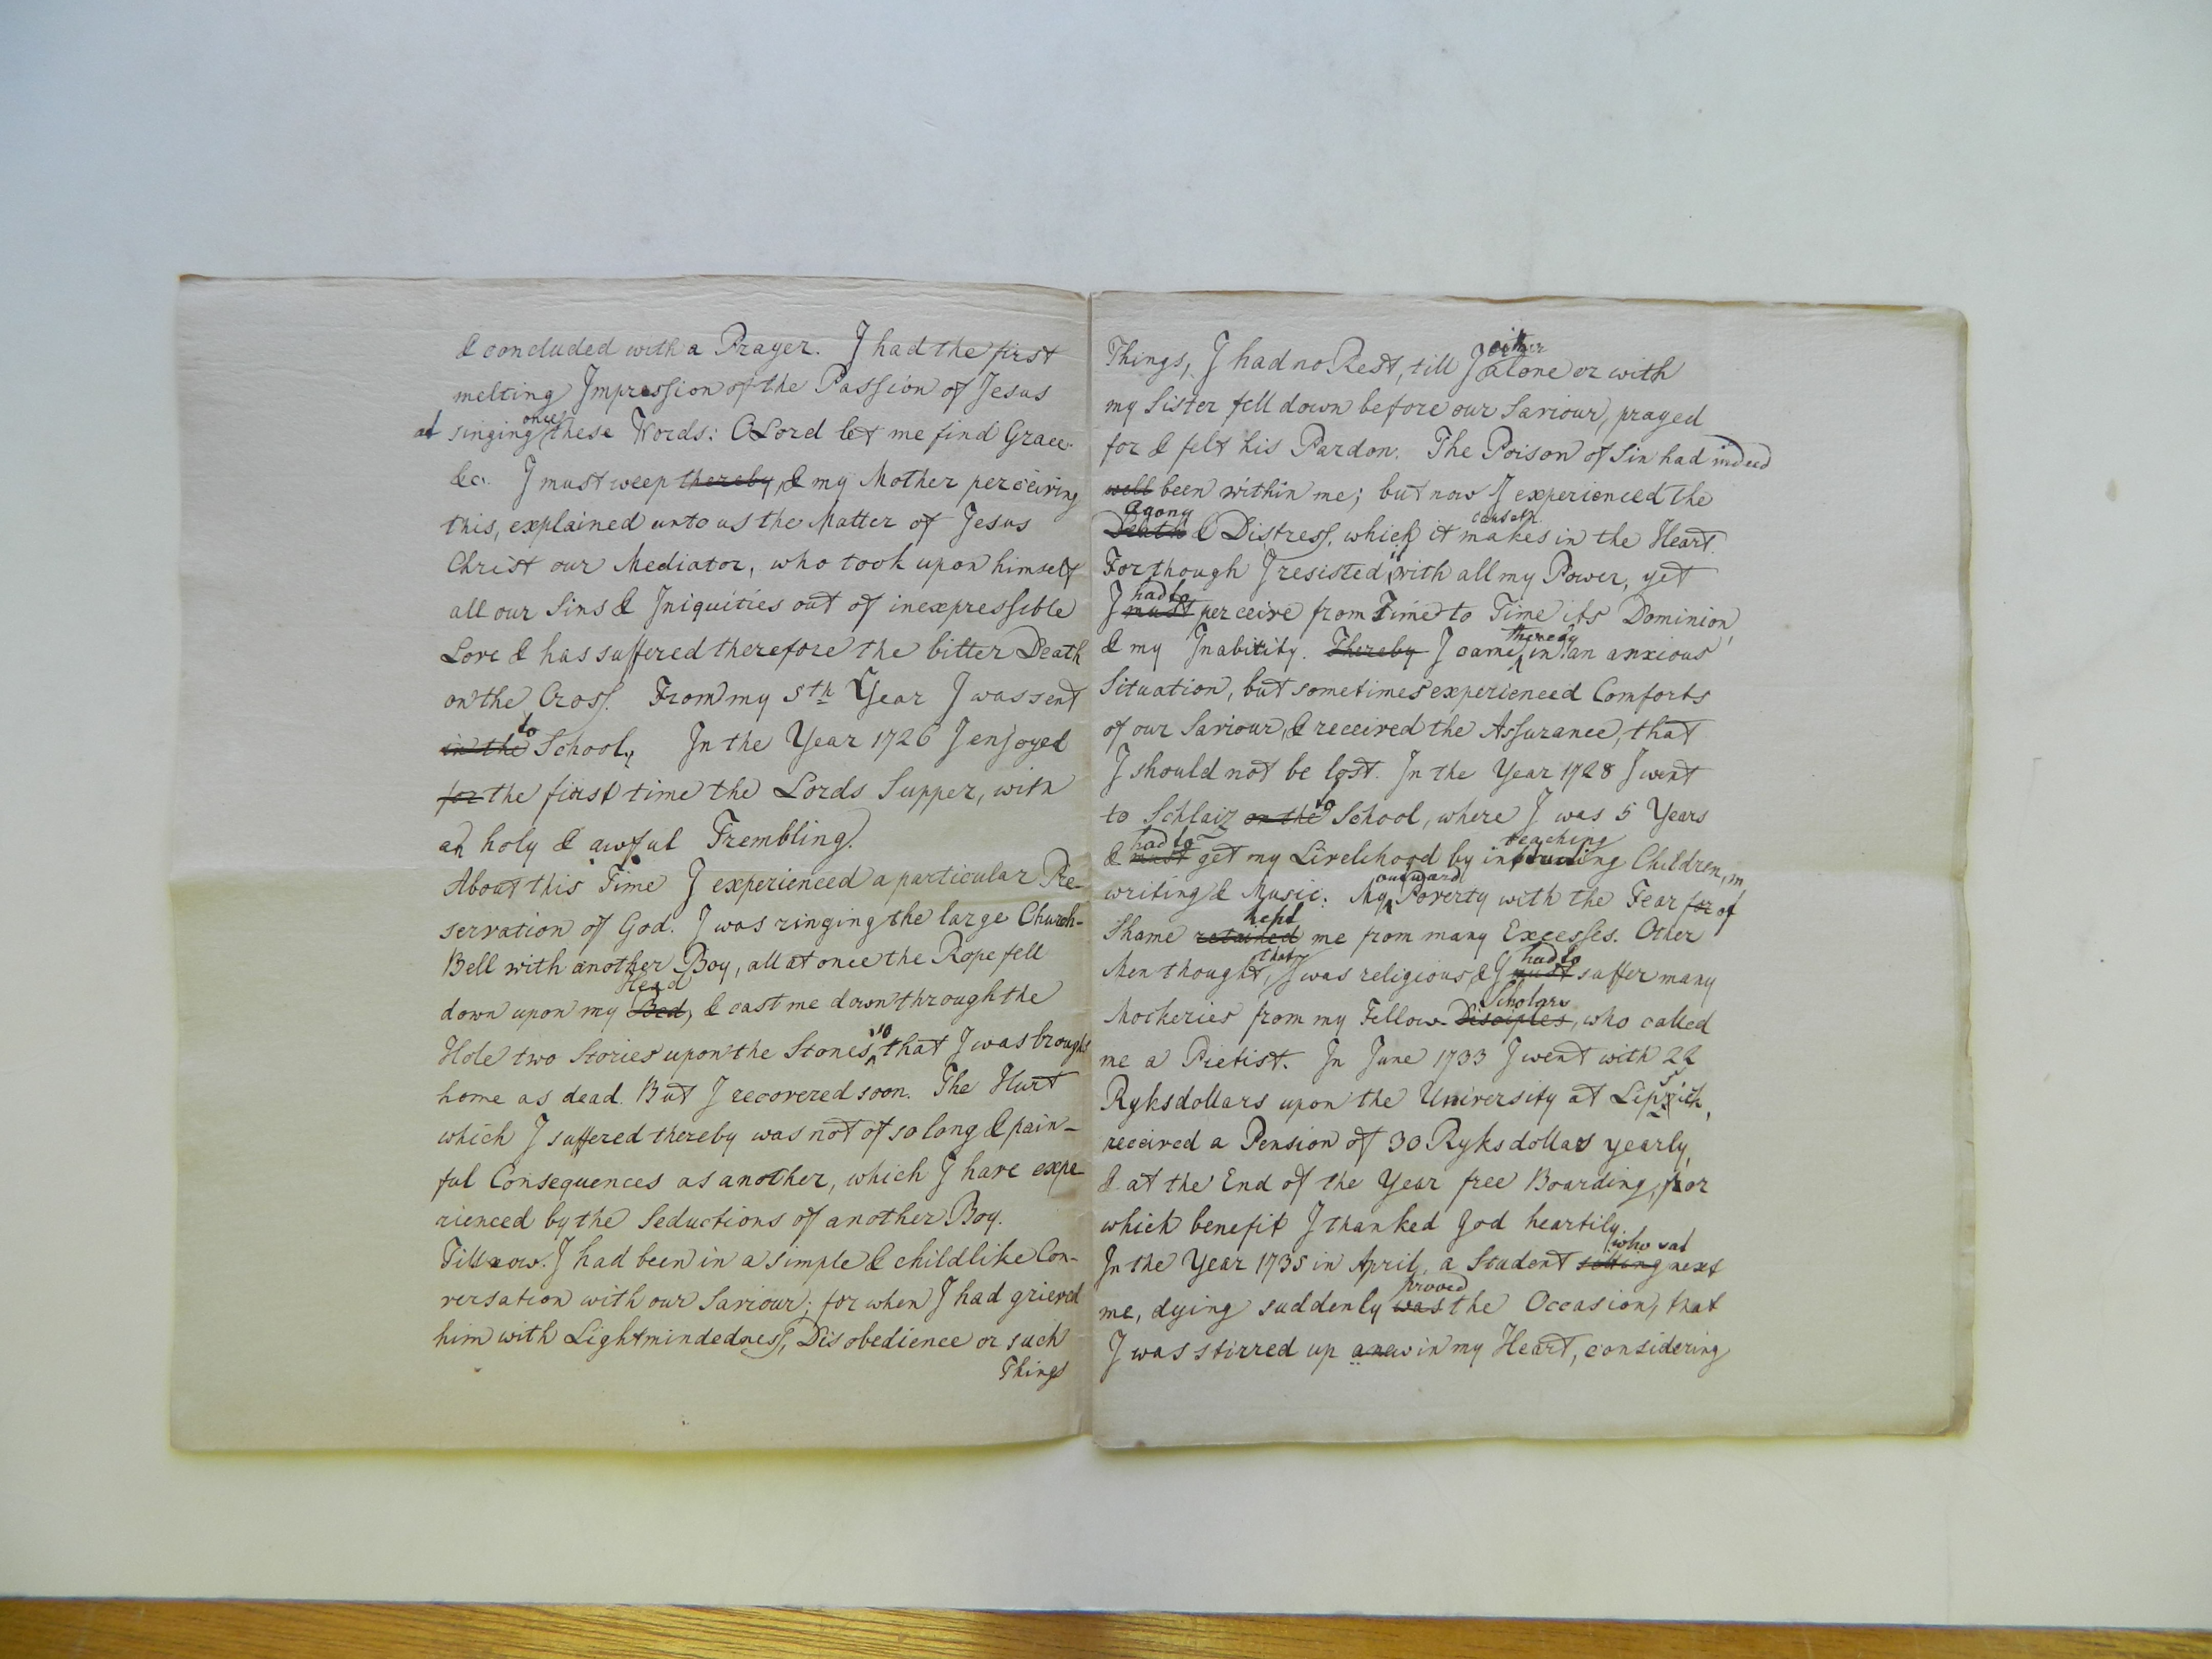 & concluded with a Prayer. I had the first
melting Impression of the Passion of Jesus
at singing once these Words: O Lord let me find Grace.
&c. I must weep thereby, & my Mother perceiving
this, explained unto us the Matter of Jesus
Christ our Mediator, who took upon himself
all our Sins & Iniquities out of inexpressible
Love & has suffered therefore the bitter Death
on the Cross. From my 5th Year I was sent
in the to School. In the Year 1726 I enjoyed
for the first time the Lords Supper, with
an holy & awful Trembling.
About this Time I experienced a particular Pre-
servation of God. I was ringing the large Church-
Bell with another Boy, all at once the Rope fell
down upon my Bed Head, & cast me down through the
Hole two Stories upon the Stones, so that I was brought
home as dead. But I recovered soon. The Hurt
which I suffered thereby was not of so long & pain-
ful Consequences as another, which I have expe
rienced by the Seductions of another Boy.
Till now I had been in a simple & childlike Con-
versation with our Saviour; for when I had grieved
him with Lightmindedness, Disobedience or such
Things
Things, I had no Rest, till I either alone or with
my Sister fell down before our Saviour, prayed
for & felt his Pardon. The Poison of Sin had indeed
well been within me; but now I experienced the
Death Agony & Distress, which it makes causeth in the Heart.
For though I resisted it with all my Power, yet
I must had to perceive from Time to Time its Dominion,
& my Inability. Thereby I came thereby in an anxious
Situation, but sometimes experienced Comforts
of our Saviour, & received the Assurance, that
I should not be lost. In the Year 1728 I went
to Schlaiz on the to School, where I was 5 Years
& must had to get my Livelihood by instructing teaching Children, in
writing & Music. My outward Poverty with the Fear for of
Shame retained kept me from many Excesses. Other
Men thought, that I was religious, & I must had to suffer many
Mockeries from my Fellow-Disciples Scholars, who called
me a Pietist. In June 1733 I went with 22
Ryksdollars upon the University at Lipsick,
received a Pension of 30 Ryksdollars yearly,
& at the End of the Year free Boarding, for
which benefit I thanked God heartily.
In the Year 1735 in April, a Student sitting who sat next
me, dying suddenly was proved the Occasion, that
I was stirred up anew in my Heart, considering